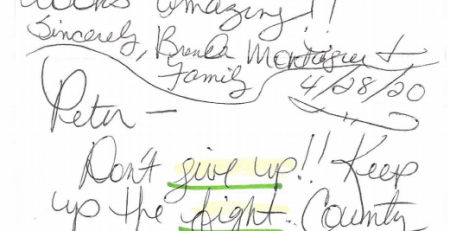 amazing!!
Sincerely, Brenda Montague +
Family
4/28/20
Peter —
Don't give up!! Keep
up the fight. County